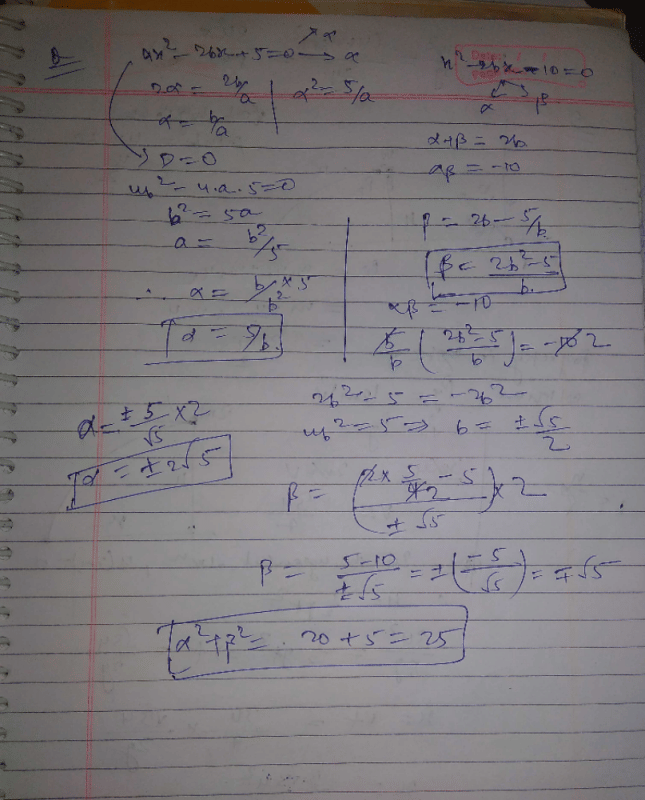 Q
ax² - 2bx + 5 = 0 → α
→ α
2α = 2b/a | α² = 5/a
α = b/a
→ D = 0
4b² - 4.a.5 = 0
b² = 5a
a = b²/5
∴ α = b/b² × 5
α = 5/b.
x² - 2bx - 10 = 0
α β
α+β = 2b
αβ = -10
β = 2b - 5/b
β = (2b² - 5)/b.
αβ = -10
5/b ((2b² - 5)/b) = -10 2
2b² - 5 = -2b²
4b² = 5 ⇒ b = ±√5/2
α = ±5/√5 × 2
α = ±2√5
β = ((2 × 5/4 2 - 5)/±√5) × 2
β = (5-10)/±√5 = ±(-5/√5) = ∓√5
α² + β² = 20 + 5 = 25